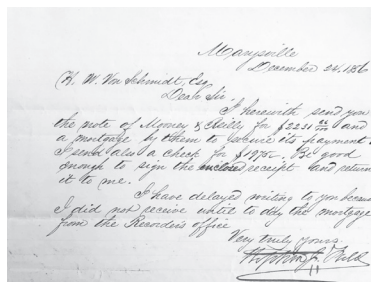 Marysville
December 24, 1856
W. Von Schmidt, Esq
Dear Sir
I herewith send you
the note of Mooney & Reilly for $2231 and
a mortgage by them to secure its payment.
I send also a check for Be good
enough to sign the enclosed receipt and return
it to me.
I have delayed writing to you because
I did not receive until to day the mortgage
from the Recorders office
Very truly yours
Field